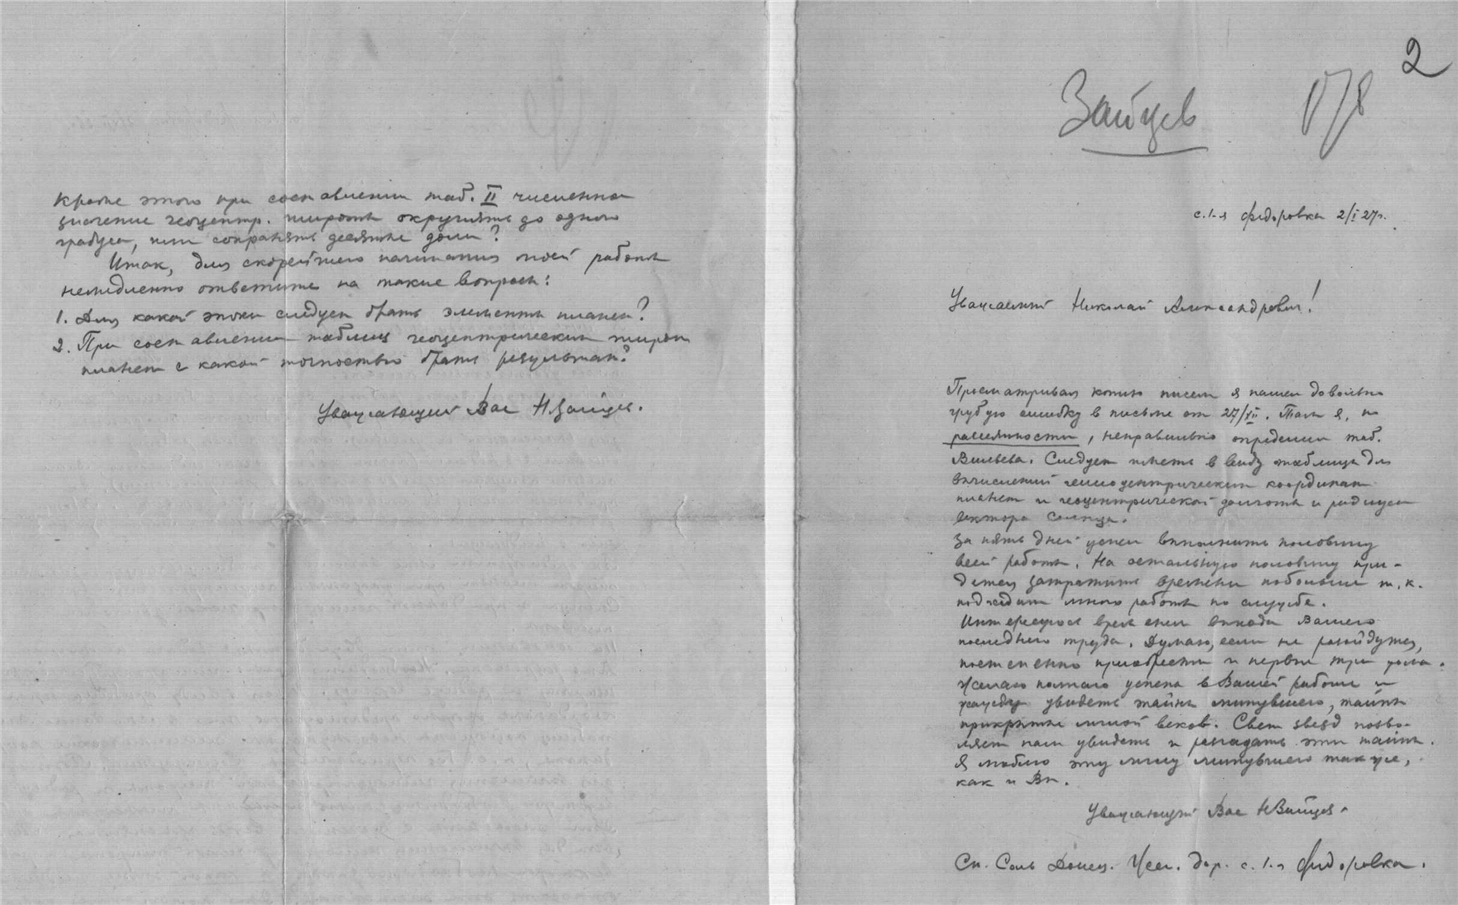 Кроме этого при составлении таб. II численное
значение геоцентр. широты округлять до одного
градуса, или сохранять десятые доли?
Итак, для скорейшего начинания моей работы
немедленно ответьте на такие вопросы:
1. Для какой эпохи следует брать элементы планет?
2. При составлении таблиц геоцентрических широт
планет с какой точностью брать результат?
Уважающий Вас НЗайцев.
2
Зайцев 178
с. 1-я Федоровка 2/I 27г.
Уважаемый Николай Александрович!
Просматривая копию писем я нашел довольно
грубую ошибку в письме от 27/XII. Там я, по
рассеянности, неправильно определил таб.
Вильева. Следует иметь в виду таблица для
вычислений гелиоцентрических координат
планет и геоцентрической долготы и радиуса
вектора Солнца.
За пять дней успел выполнить половину
всей работы. На остальную половину при-
дется затратить времени побольше т.к.
подходит много работы по службе.
Интересуюсь временем выхода Вашего
последнего труда. Думаю, если не разойдутся,
постепенно приобрести и первые три тома.
Желаю полного успеха в Вашей работе и
жажду увидеть тайны минувшего, тайны
прикрытые мглой веков. Свет звезд позво-
ляет нам увидеть и разгадать эти тайны.
Я люблю эту мглу минувшего так же,
как и Вы.
Уважающий Вас НЗайцев.
Ст. Соль Донец. жел. дор. с. 1-я Федоровка.